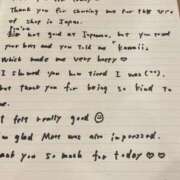 Thank you for choosing me for this
of shop in Japan.
I'm
not good at Japanese, but you
your best and you told me "kawaii".
Which made me very happy ♡
I showed you how tired I was (^^).
but Thank you for being so kind
to
me.
I felt really good ☺
I'm glad Mars was also impressed.
Thank you so much for today ♡♡